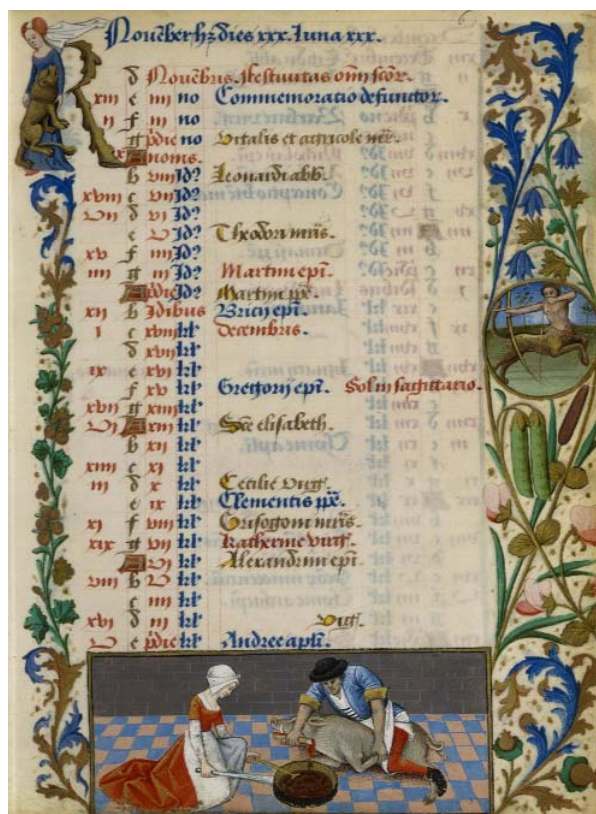 Nouēber hȝ dies xxx. luna xxx.
d Nouēbris. festiuitas om̄ sc̄or.
xiii e iiii no Commemoratio defunctor.
ii f iii no
g pdie no Vitalis et agricole mr̄.
A nonis.
b viii Id? Leonardi abb.
xviii c vii Id?
vii d vi Id?
e v Id? Theodori mr̄is.
xv f iiii Id?
iiii g iii Id? Martini epī.
A pdie Id? Martini pp̄e.
xii b Idibus Bricij epī.
i c xviii kł decembris.
d xvii kł
ix e xvi kł
f xv kł Gregorij epī. Sol in sagittario.
xvii g xiiii kł
vi A xiii kł Sc̄e elisabeth.
b xii kł
xiiii c xi kł
iii d x kł Cecilie virḡ.
e ix kł Clementis pp̄e.
xi f viii kł Grisogoni mr̄is.
xix g vii kł Katherine virḡ.
A vi kł Alexandrini epī.
viii b v kł
c iiii kł
xvi d iii kł Viḡ.
v e pdie kł Andree apłi.